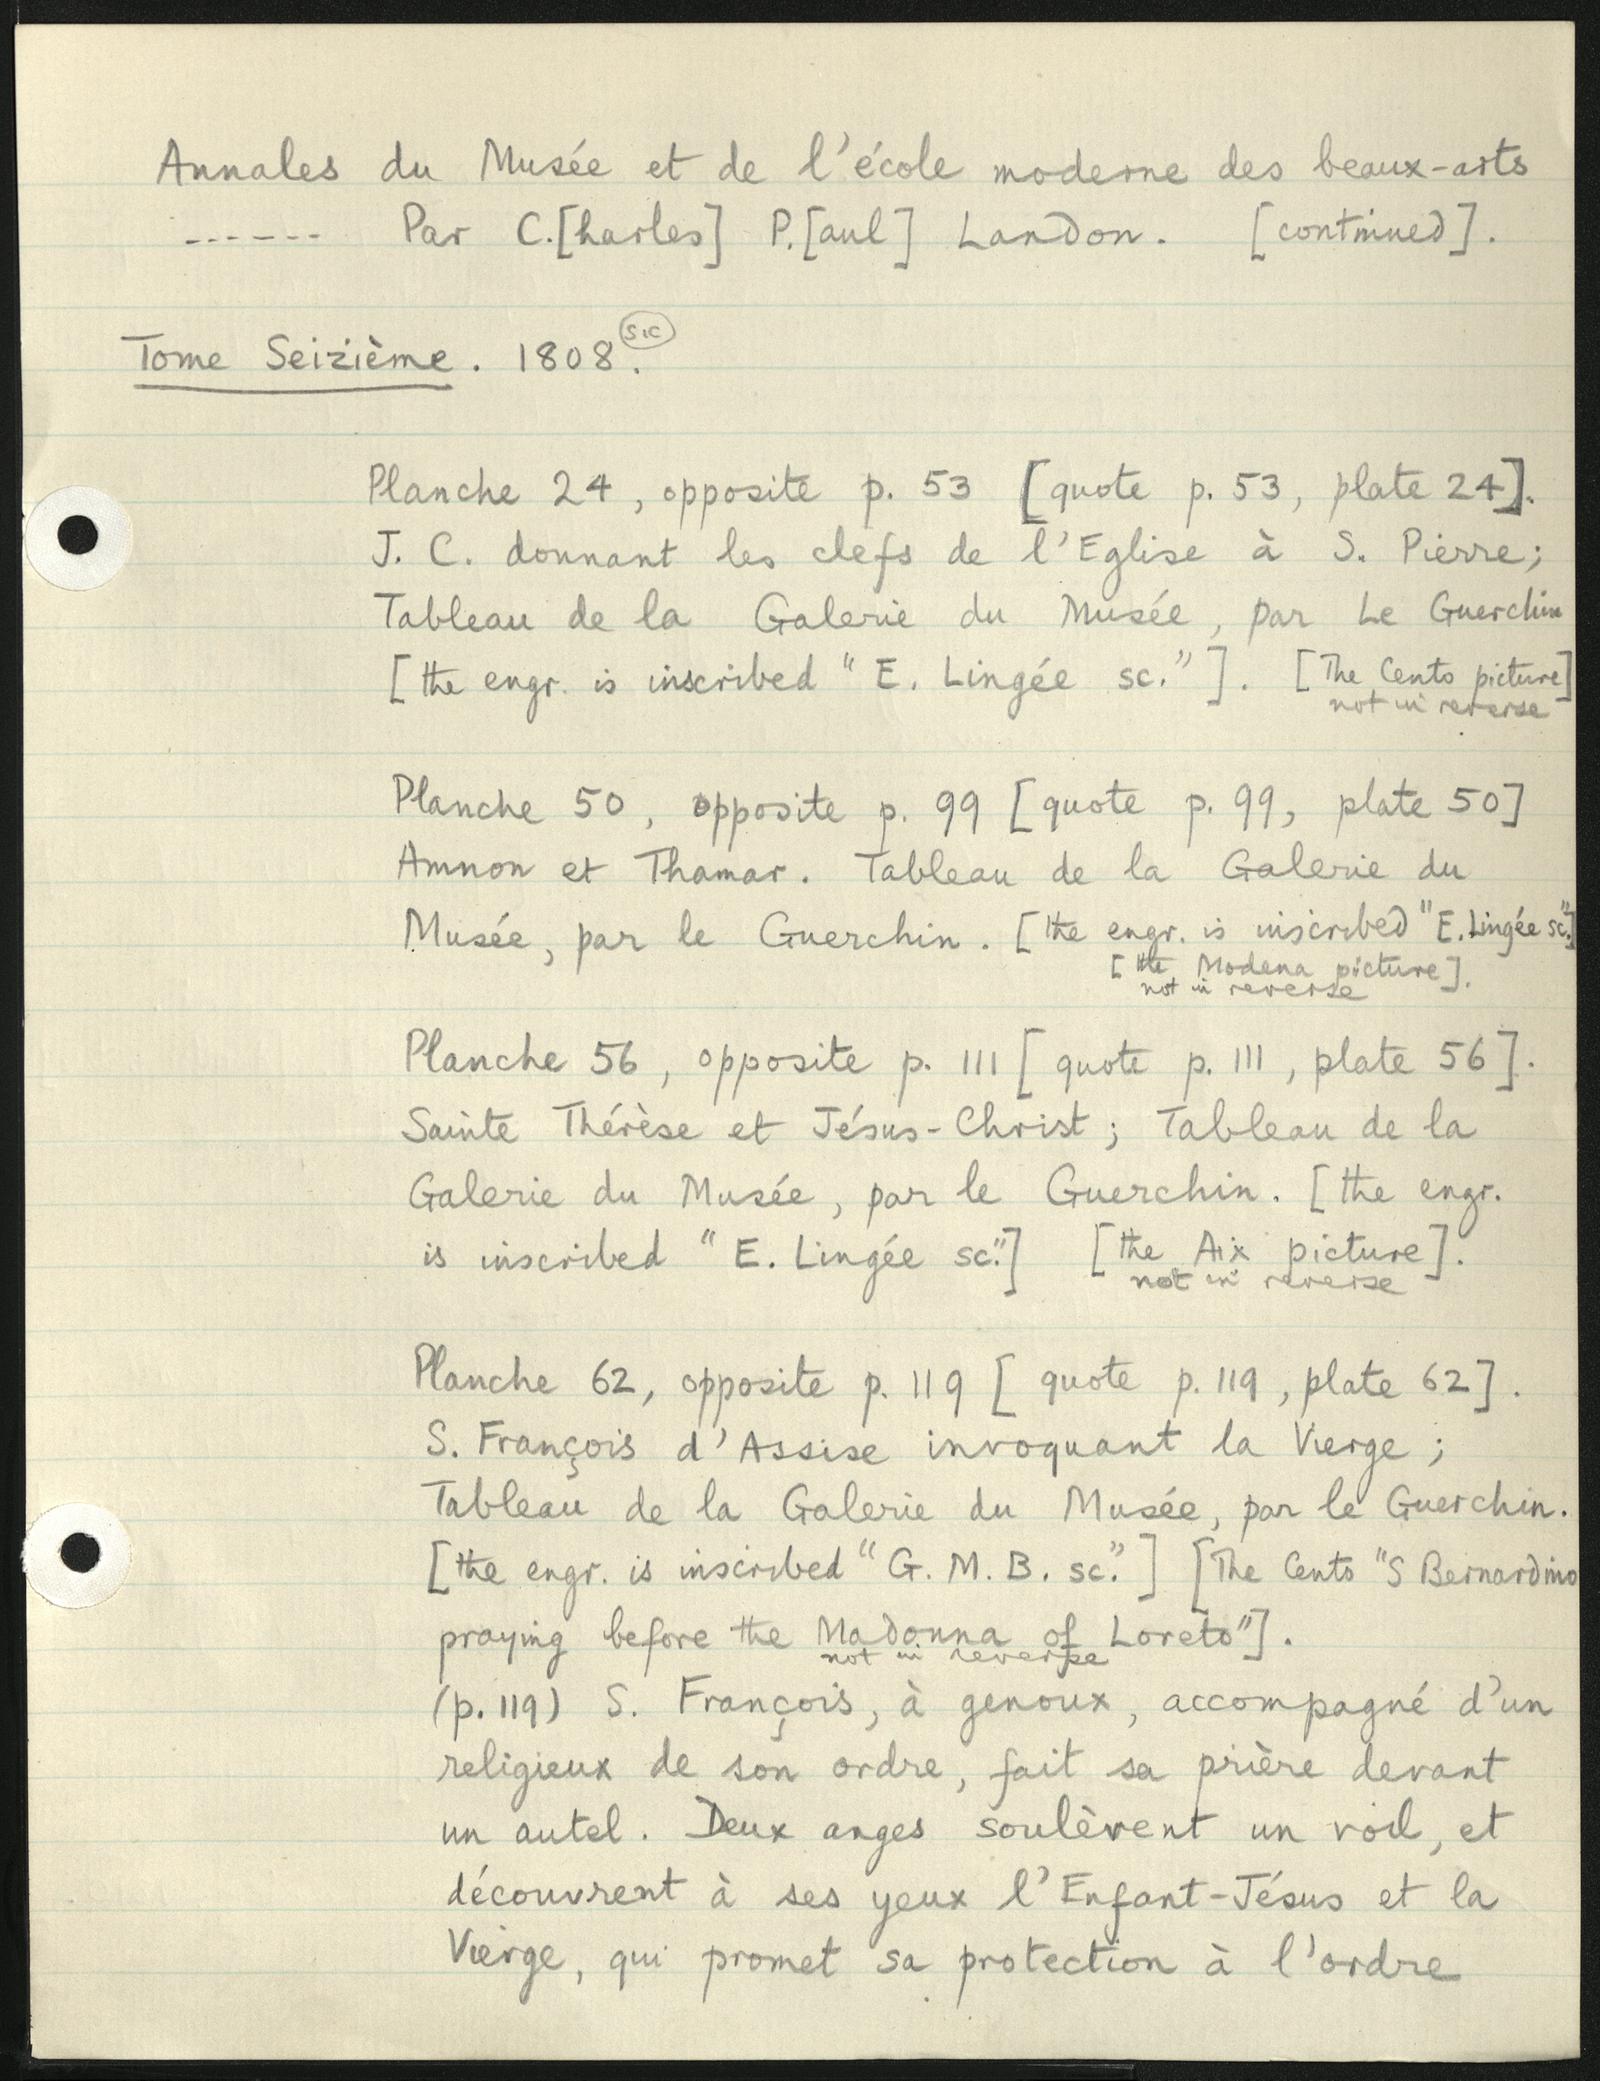 Annales du Musée et de l'école moderne des beaux-arts
------ Par C.[harles] P.[aul] Landon. [continued].
Tome Seizième. 1808. sic
Planche 24, opposite p. 53 [quote p. 53, plate 24].
J. C. donnant les clefs de l'Eglise à S. Pierre;
Tableau de la Galerie du Musée, par Le Guerchin
[the engr. is inscribed "E. Lingée sc."]. [The Cento picture]
not in reverse
Planche 50, opposite p. 99 [quote p. 99, plate 50]
Amnon et Thamar. Tableau de la Galerie du
Musée, par le Guerchin. [the engr. is inscribed "E. Lingée sc."]
[the Modena picture].
not in reverse
Planche 56, opposite p. 111 [quote p. 111, plate 56].
Sainte Thérèse et Jésus-Christ; Tableau de la
Galerie du Musée, par le Guerchin. [the engr.
is inscribed "E. Lingée sc."] [the Aix picture].
not in reverse
Planche 62, opposite p. 119 [quote p. 119, plate 62].
S. François d'Assise invoquant la Vierge;
Tableau de la Galerie du Musée, par le Guerchin.
[the engr. is inscribed "G. M. B. sc."] [The Cento "S Bernardino
praying before the Madonna of Loreto"].
not in reverse
(p. 119) S. François, à genoux, accompagné d'un
religieux de son ordre, fait sa prière devant
un autel. Deux anges soulèvent un voil, et
découvrent à ses yeux l'Enfant-Jésus et la
Vierge, qui promet sa protection à l'ordre